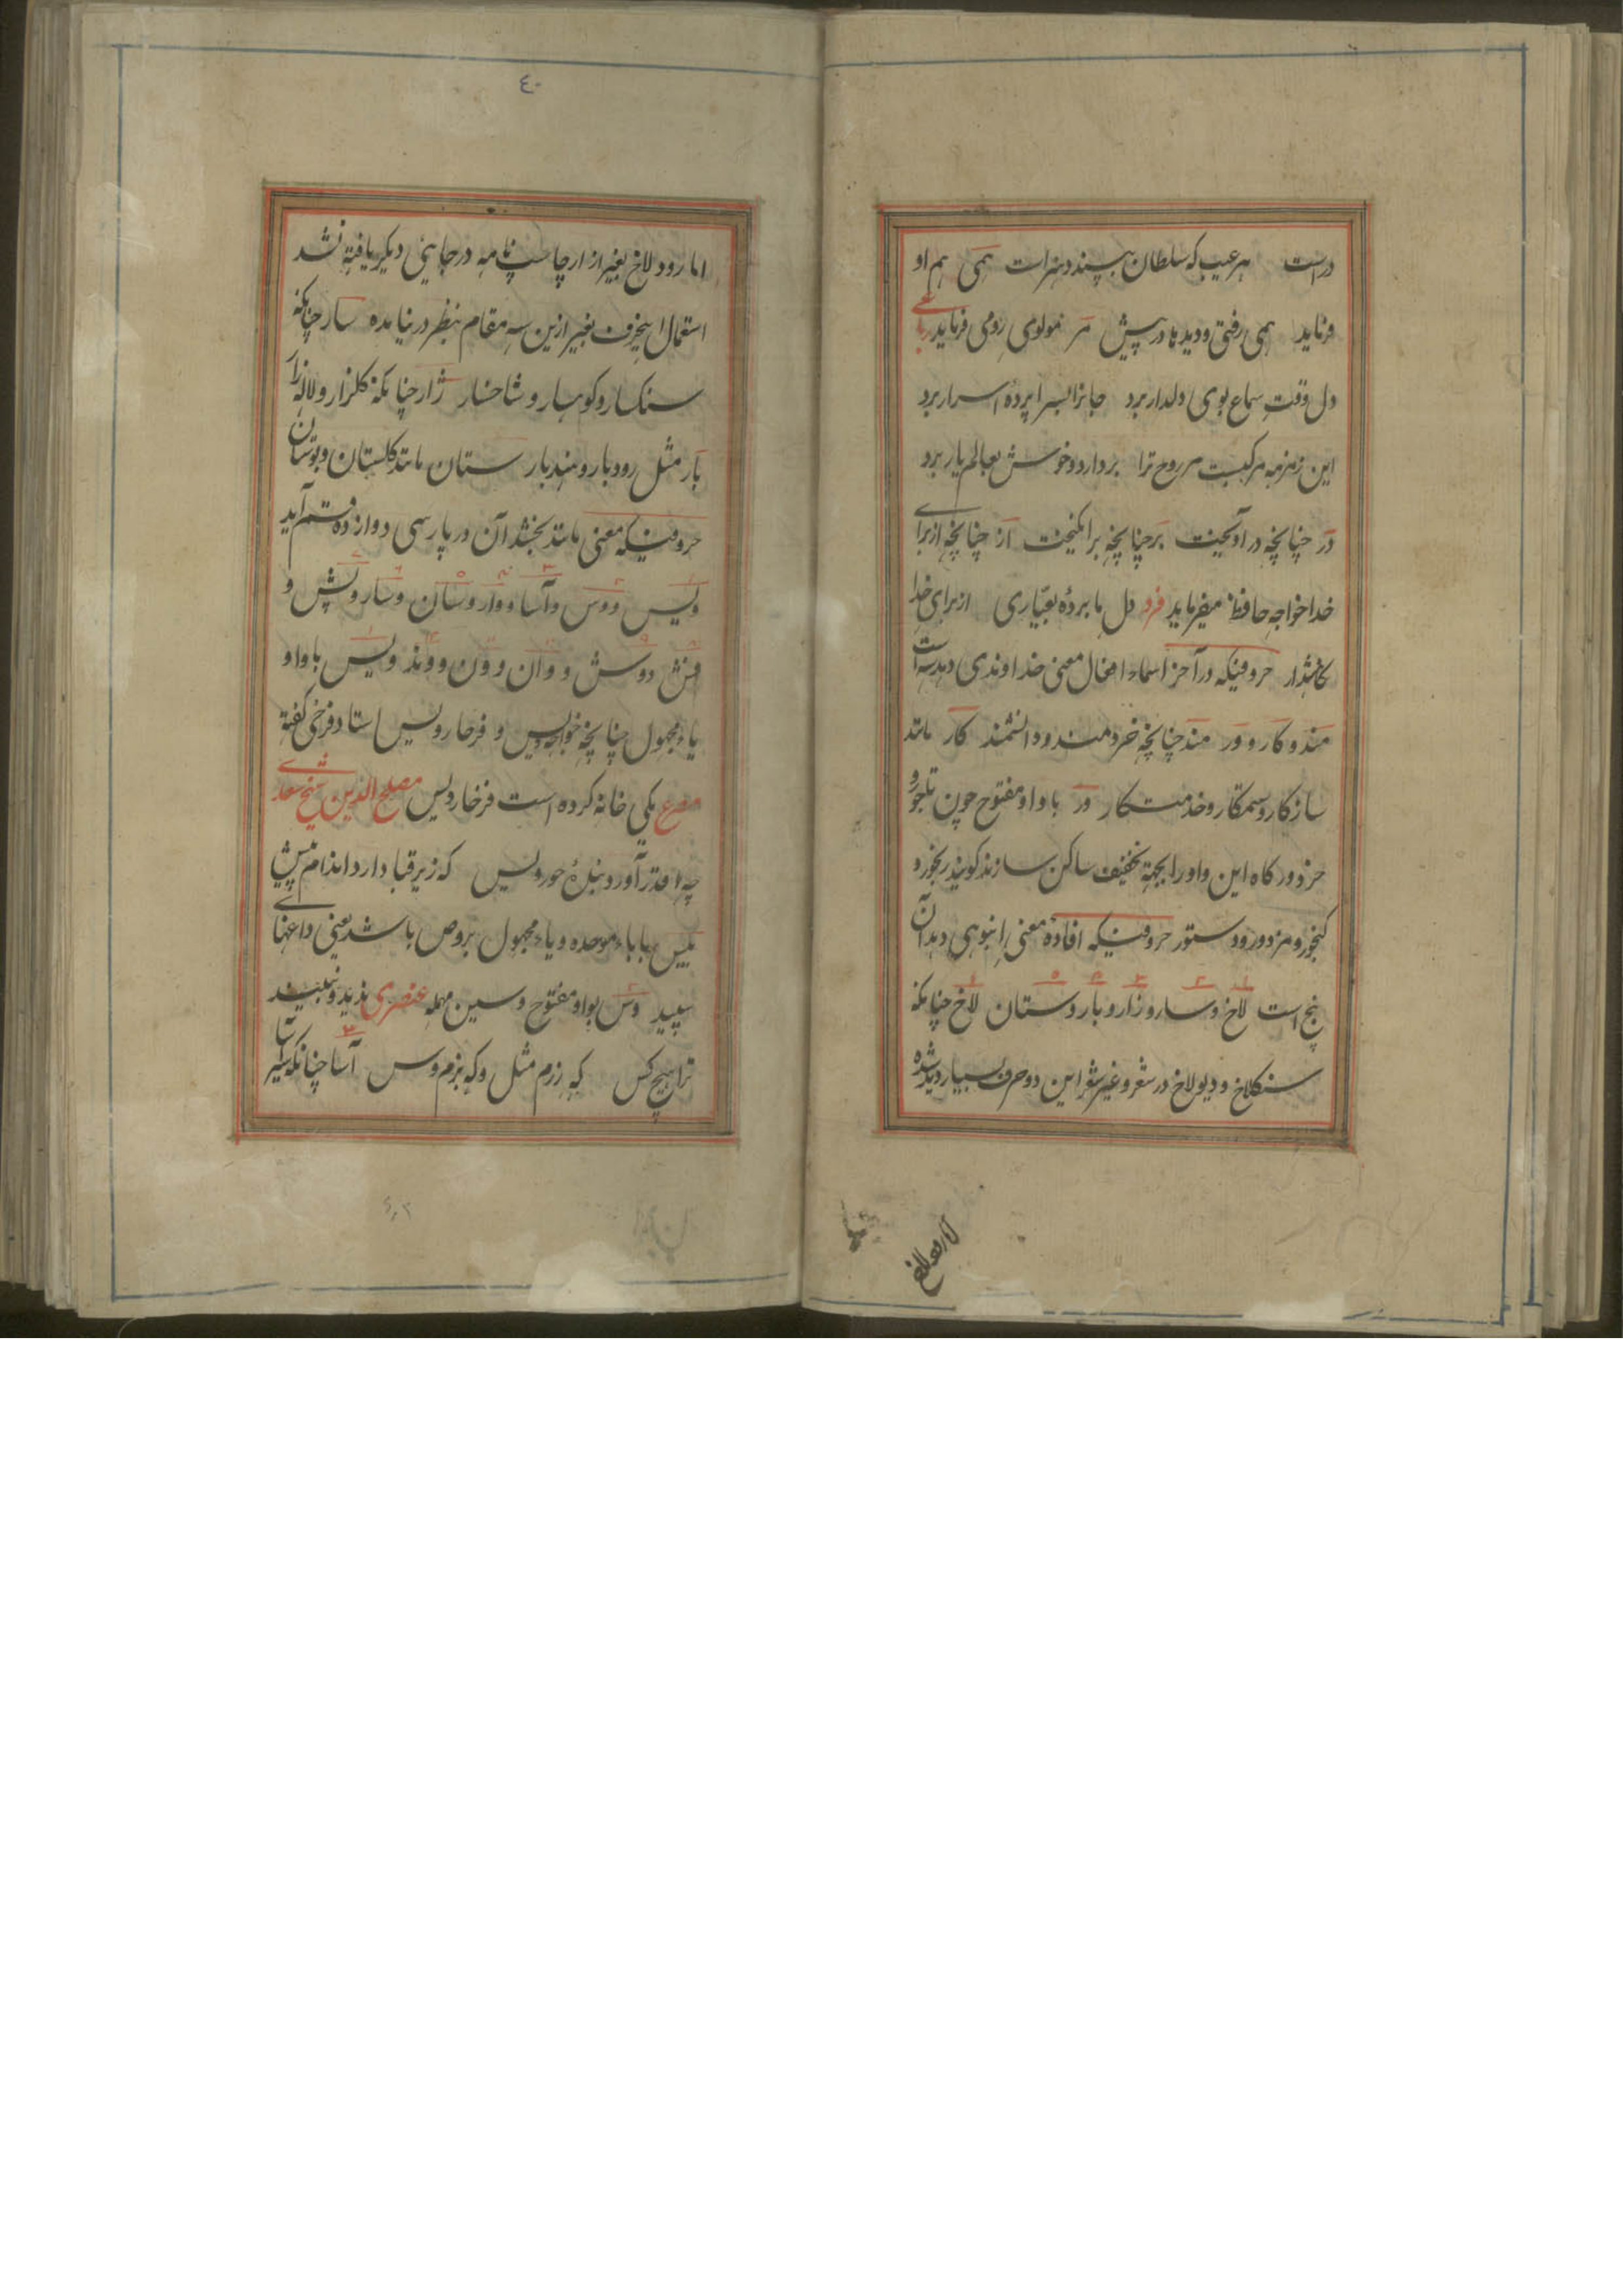 دراست هر عیب که سلطان بپسندد هنر است همی هم او
فرماید همی رفتی و دیدها در پیش مر مولوی رومی فرماید رباعی
دل وقت سماع بوی دلدار برد جانرا بسراپردهٔ اسرار برد
این زمزمه مرکبیست مر روح ترا بردارد و خوش بعالم یار برد
در چنانچه در آویخت بر چنانچه برانگیخت از چنانچه از برای
خدا خواجه حافظ میفرماید فرد دل ما بردهٔ بعیاری از برای خدا
نگاهدار حروفیکه در آخر اسماء افعال معنی خداوندی دهد سه است
مند و کار و ور مند چنانچه خردمند و دانشمند کار مانند
سازکار و ستمکار و خدمتکار ور با واو مفتوح چون تاجور و
گاه این واو را بجهة تخفیف ساکن سازند گویند رنجور و
گنجور و مزدور و دستور حروفیکه افادهٔ معنی انبوهی دهد آن
پنج است لاخ و سار و زار و بار و ستان لاخ چنانکه
سنگلاخ و دیولاخ در شعر و غیر شعر این دو حرف بسیار دیده شده
اما رودلاخ
٤٠
اما رود لاخ بغیر از ارچاسب نامه در جایی دیگر یافته نشد
استعمال اینحرف بغیر ازین سه مقام بنظر در نیامده سار چنانکه
سنکسار و کوهسار و شاخسار زار چنانکه کلزار و لاله زار
بار مثل رودبار و هندبار ستان مانند کلستان و بوستان
حروفیکه معنی مانند بخشد آن در پارسی دوازده قسم آید
ویس و وس و آسا و وار و سان و سار و پش و
فش و وش و وان و ون و وند ویس با واو
یاء مجهول چنانچه خواجه ویس و فرخار ویس استاد فرخی گفته
مصرع یکی خانه کرده است فرخار ویس مصلح الدین شیخ سعدی
چه قدر آورد بندهٔ حور ویس که زیر قبا دارد اندام پیس
پیس با باء موحده و یاء مجهول برص باشد یعنی داغهای
سپید وس بواو مفتوح و سین مهمله عنصری ندید و نبیند
ترا هیچ کس که رزم مثل و که بزم وس آسا چنانکه شیرآسا